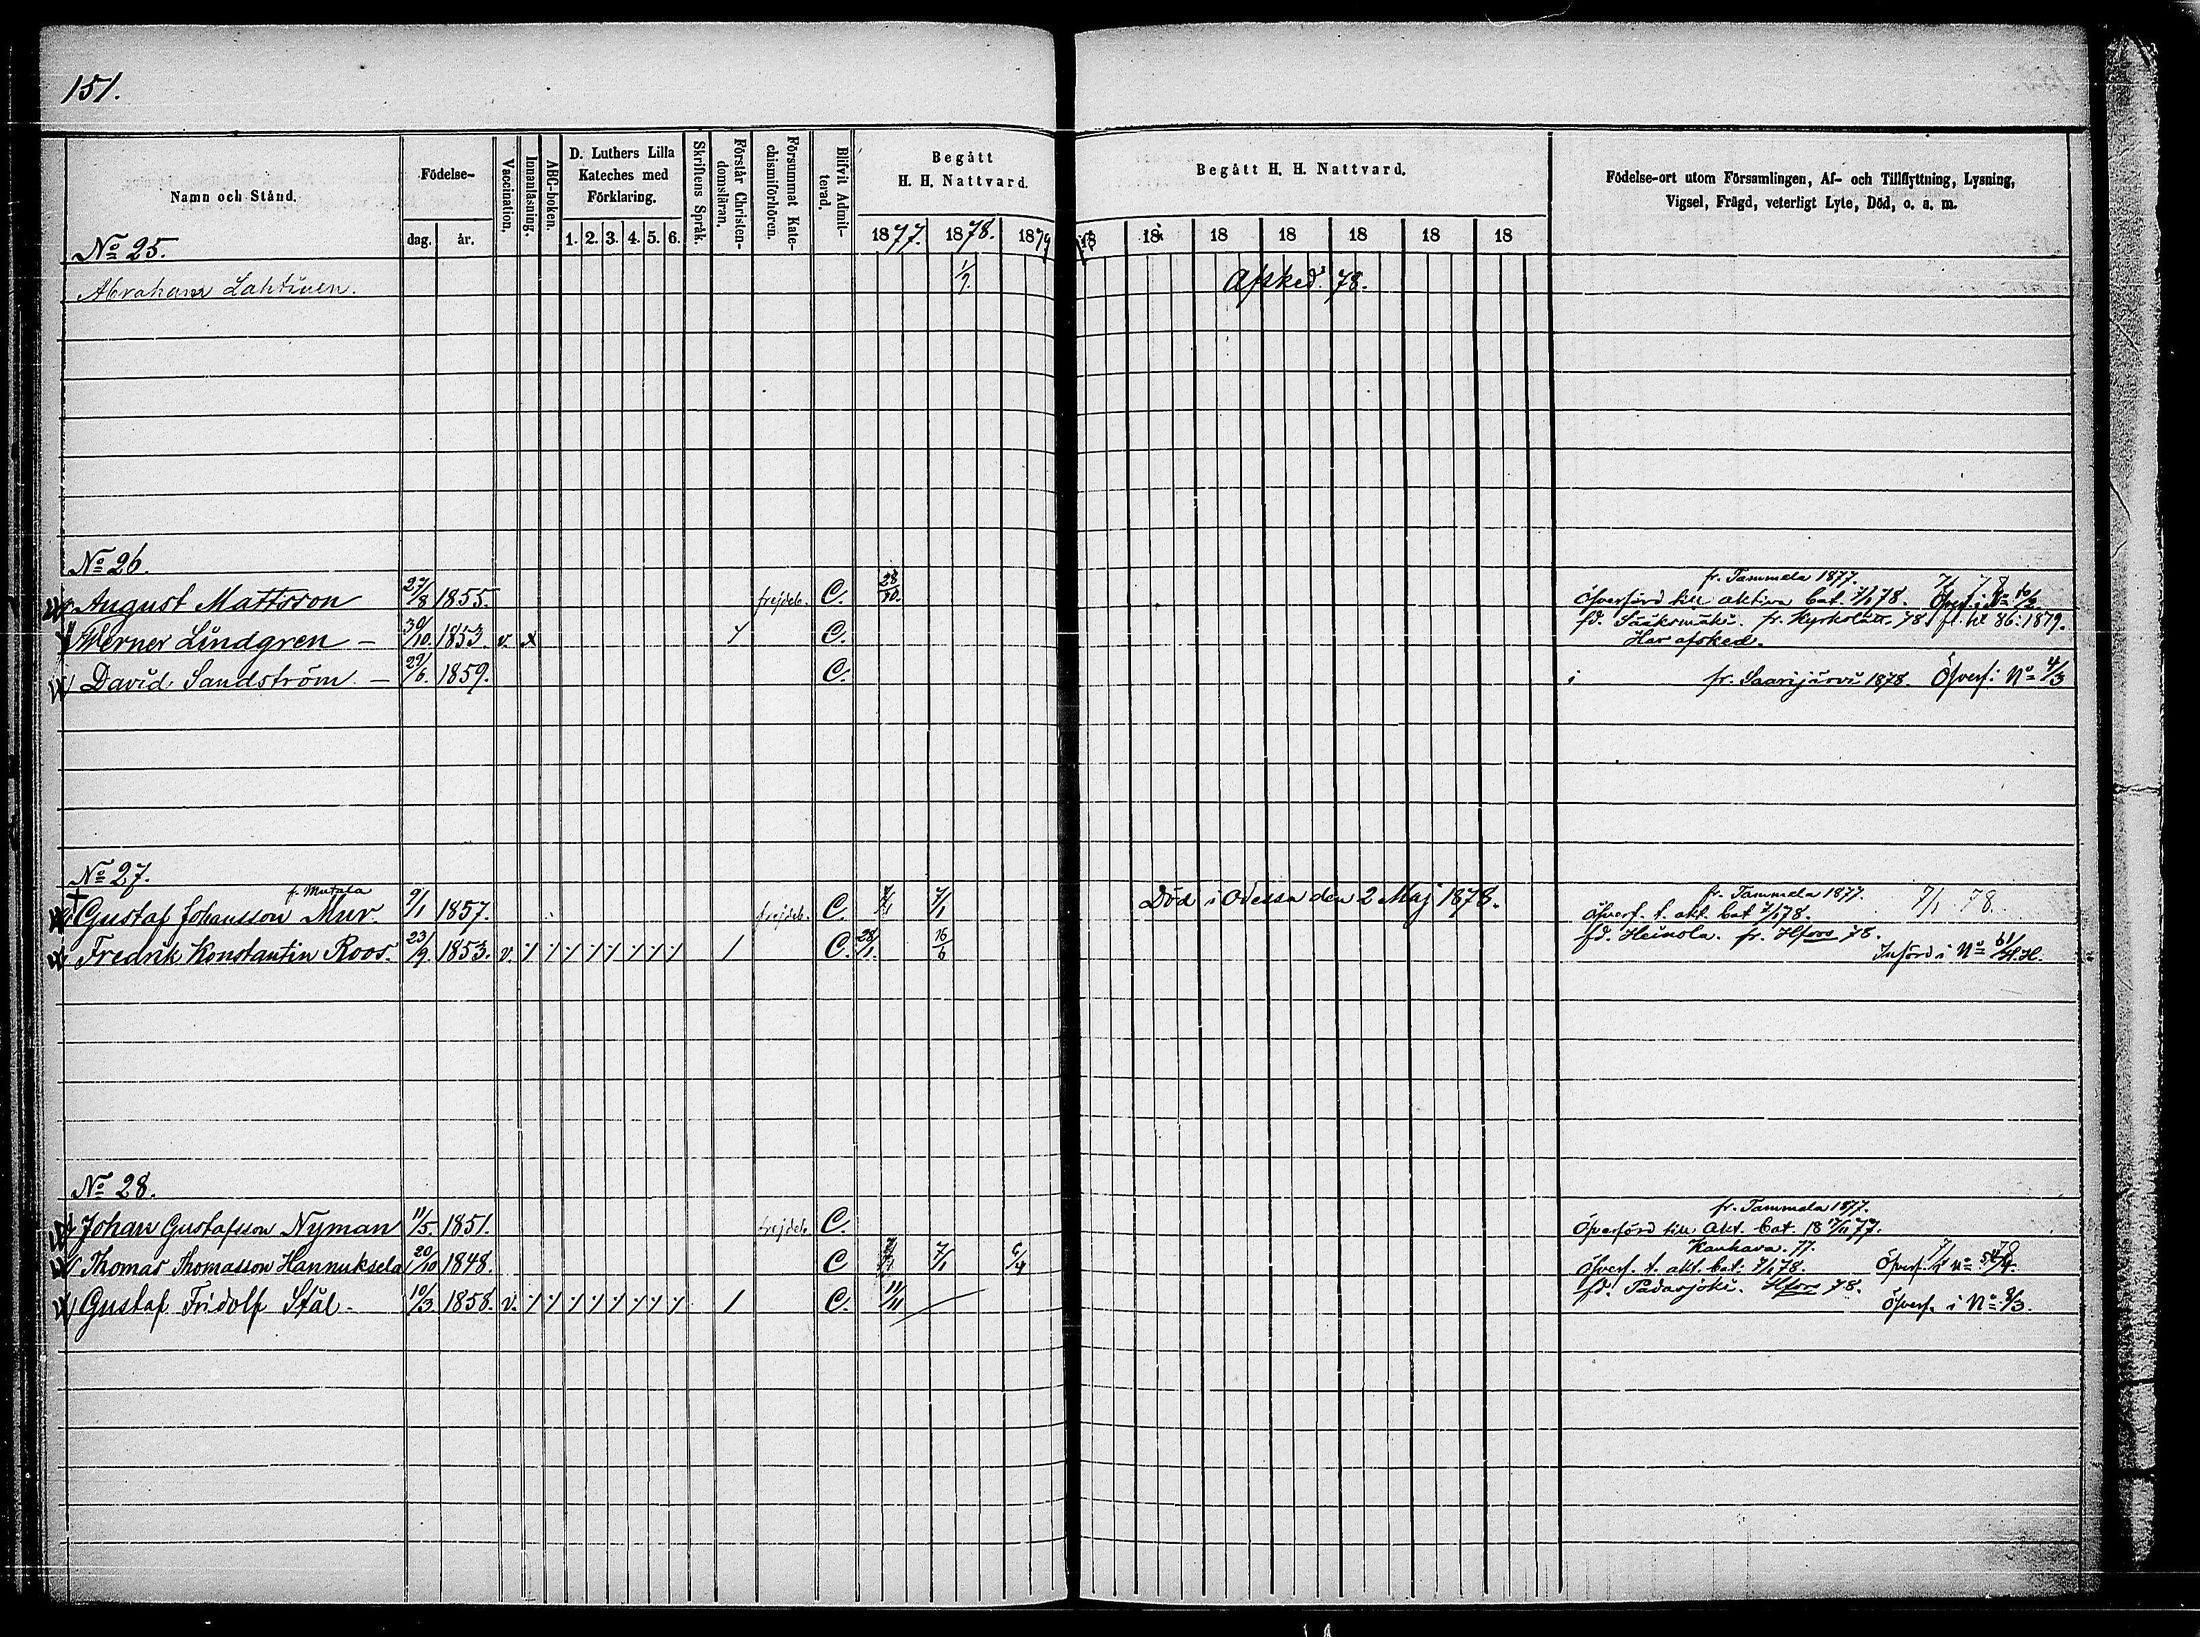 151.
Namn och Stånd.
Födelse-
dag. år.
Vaccination.
Innanläsning.
ABC-boken.
D. Luthers Lilla
Kateches med
Förklaring.
1. 2. 3. 4. 5. 6.
Skriftens Språk.
Förstår Christen-
domsläran.
Försummat Kate-
chismiförhören.
Blifvit Admit-
terad.
Begått
H. H. Nattvard.
1877. 1878. 1879
Begått H. H. Nattvard.
18 18 18 18 18 18 18
Födelse-ort utom Församlingen, Af- och Tillflyttning, Lysning,
Vigsel, Frägd, veterligt Lyte, Död, o. a. m.
No 25.
Abraham Lahtinen. 1/9. Afsked. 78.
No 26.
fr. Tammela 1877.
August Mattsson 27/8 1855. frejdeb. C. 28/10. Öfverförd till aktiva bat. 7/1 78.
Werner Lindgren - 30/10. 1853. v. x C. fd. Sääksmäki. fr. Kyrkslätt. 78. fl. till 86: 1879.
Har afsked.
David Sandström. - 29/6. 1859. C. fr. Saarijärvi 1878. Öfverf: No 4/3
No 27.
f. Mutala fr. Tammela 1877.
Gustaf Johansson Mur. 9/1 1857. frejdeb. C. 7/1 Död i Odessa den 2 Maj 1878. Öfverf. t. akt. bat 7/1 78. 7/1 78.
Fredrik Konstantin Roos. 23/9. 1853. v. C. 28/1. 16/6 fd. Heinola. fr. Hfors 78. Införd i No 61/H.H.
No 28.
fr. Tammela 1877.
Johan Gustafsson Nyman 11/5. 1851. frejdeb. C. Öfverförd till Akt. bat. 18 17/11 77.
Kauhava. 77.
Thomas Thomasson Hannuksela 20/10 1848. C 7/1 6/4 Öfverf. t. akt. bat. 7/1 78.
Gustaf Fridolf Stål - 10/3 1858. v. C. 11/11 fd. Padasjoki. Hfors 78. Öfverf. i No 8/3.